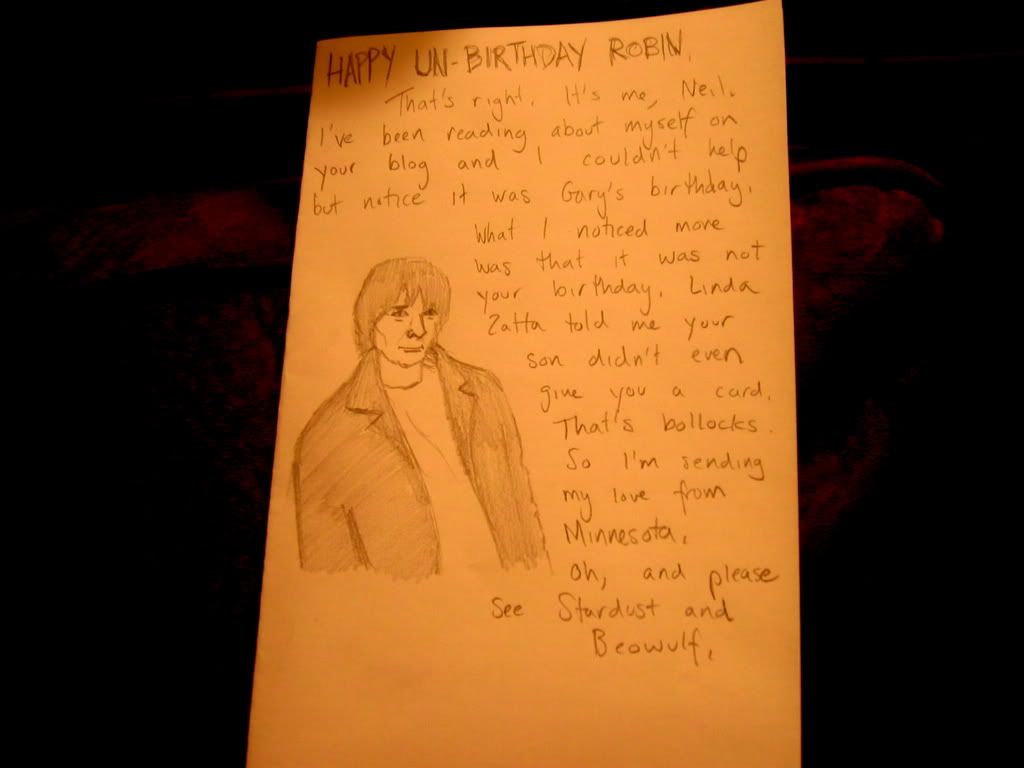 HAPPY UN-BIRTHDAY ROBIN.
That's right. It's me, Neil.
I've been reading about myself on
your blog and I couldn't help
but notice it was Gary's birthday.
What I noticed more
was that it was not
your birthday. Linda
Zatta told me your
son didn't even
give you a card.
That's bollocks.
So I'm sending
my love from
Minnesota.
Oh, and please
see Stardust and
Beowulf.